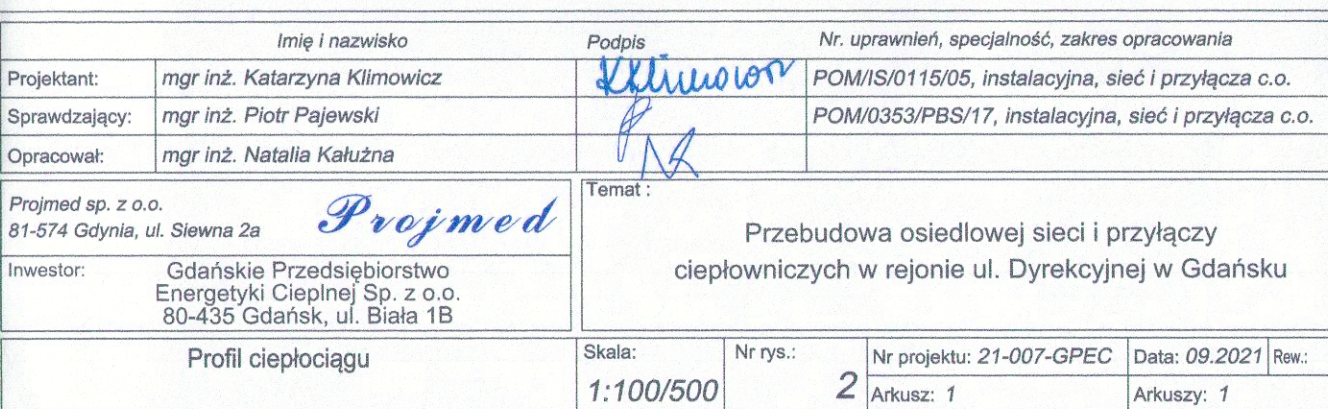 Imię i nazwisko Podpis Nr. uprawnień, specjalność, zakres opracowania
Projektant: mgr inż. Katarzyna Klimowicz KKlimowicz POM/IS/0115/05, instalacyjna, sieć i przyłącza c.o.
Sprawdzający: mgr inż. Piotr Pajewski POM/0353/PBS/17, instalacyjna, sieć i przyłącza c.o.
Opracował: mgr inż. Natalia Kałużna
Projmed sp. z o.o.
81-574 Gdynia, ul. Siewna 2a
Projmed
Inwestor: Gdańskie Przedsiębiorstwo
Energetyki Cieplnej Sp. z o.o.
80-435 Gdańsk, ul. Biała 1B
Temat :
Przebudowa osiedlowej sieci i przyłączy
ciepłowniczych w rejonie ul. Dyrekcyjnej w Gdańsku
Profil ciepłociągu
Skala:
1:100/500
Nr rys.:
2
Nr projektu: 21-007-GPEC Data: 09.2021 Rew.:
Arkusz: 1 Arkuszy: 1